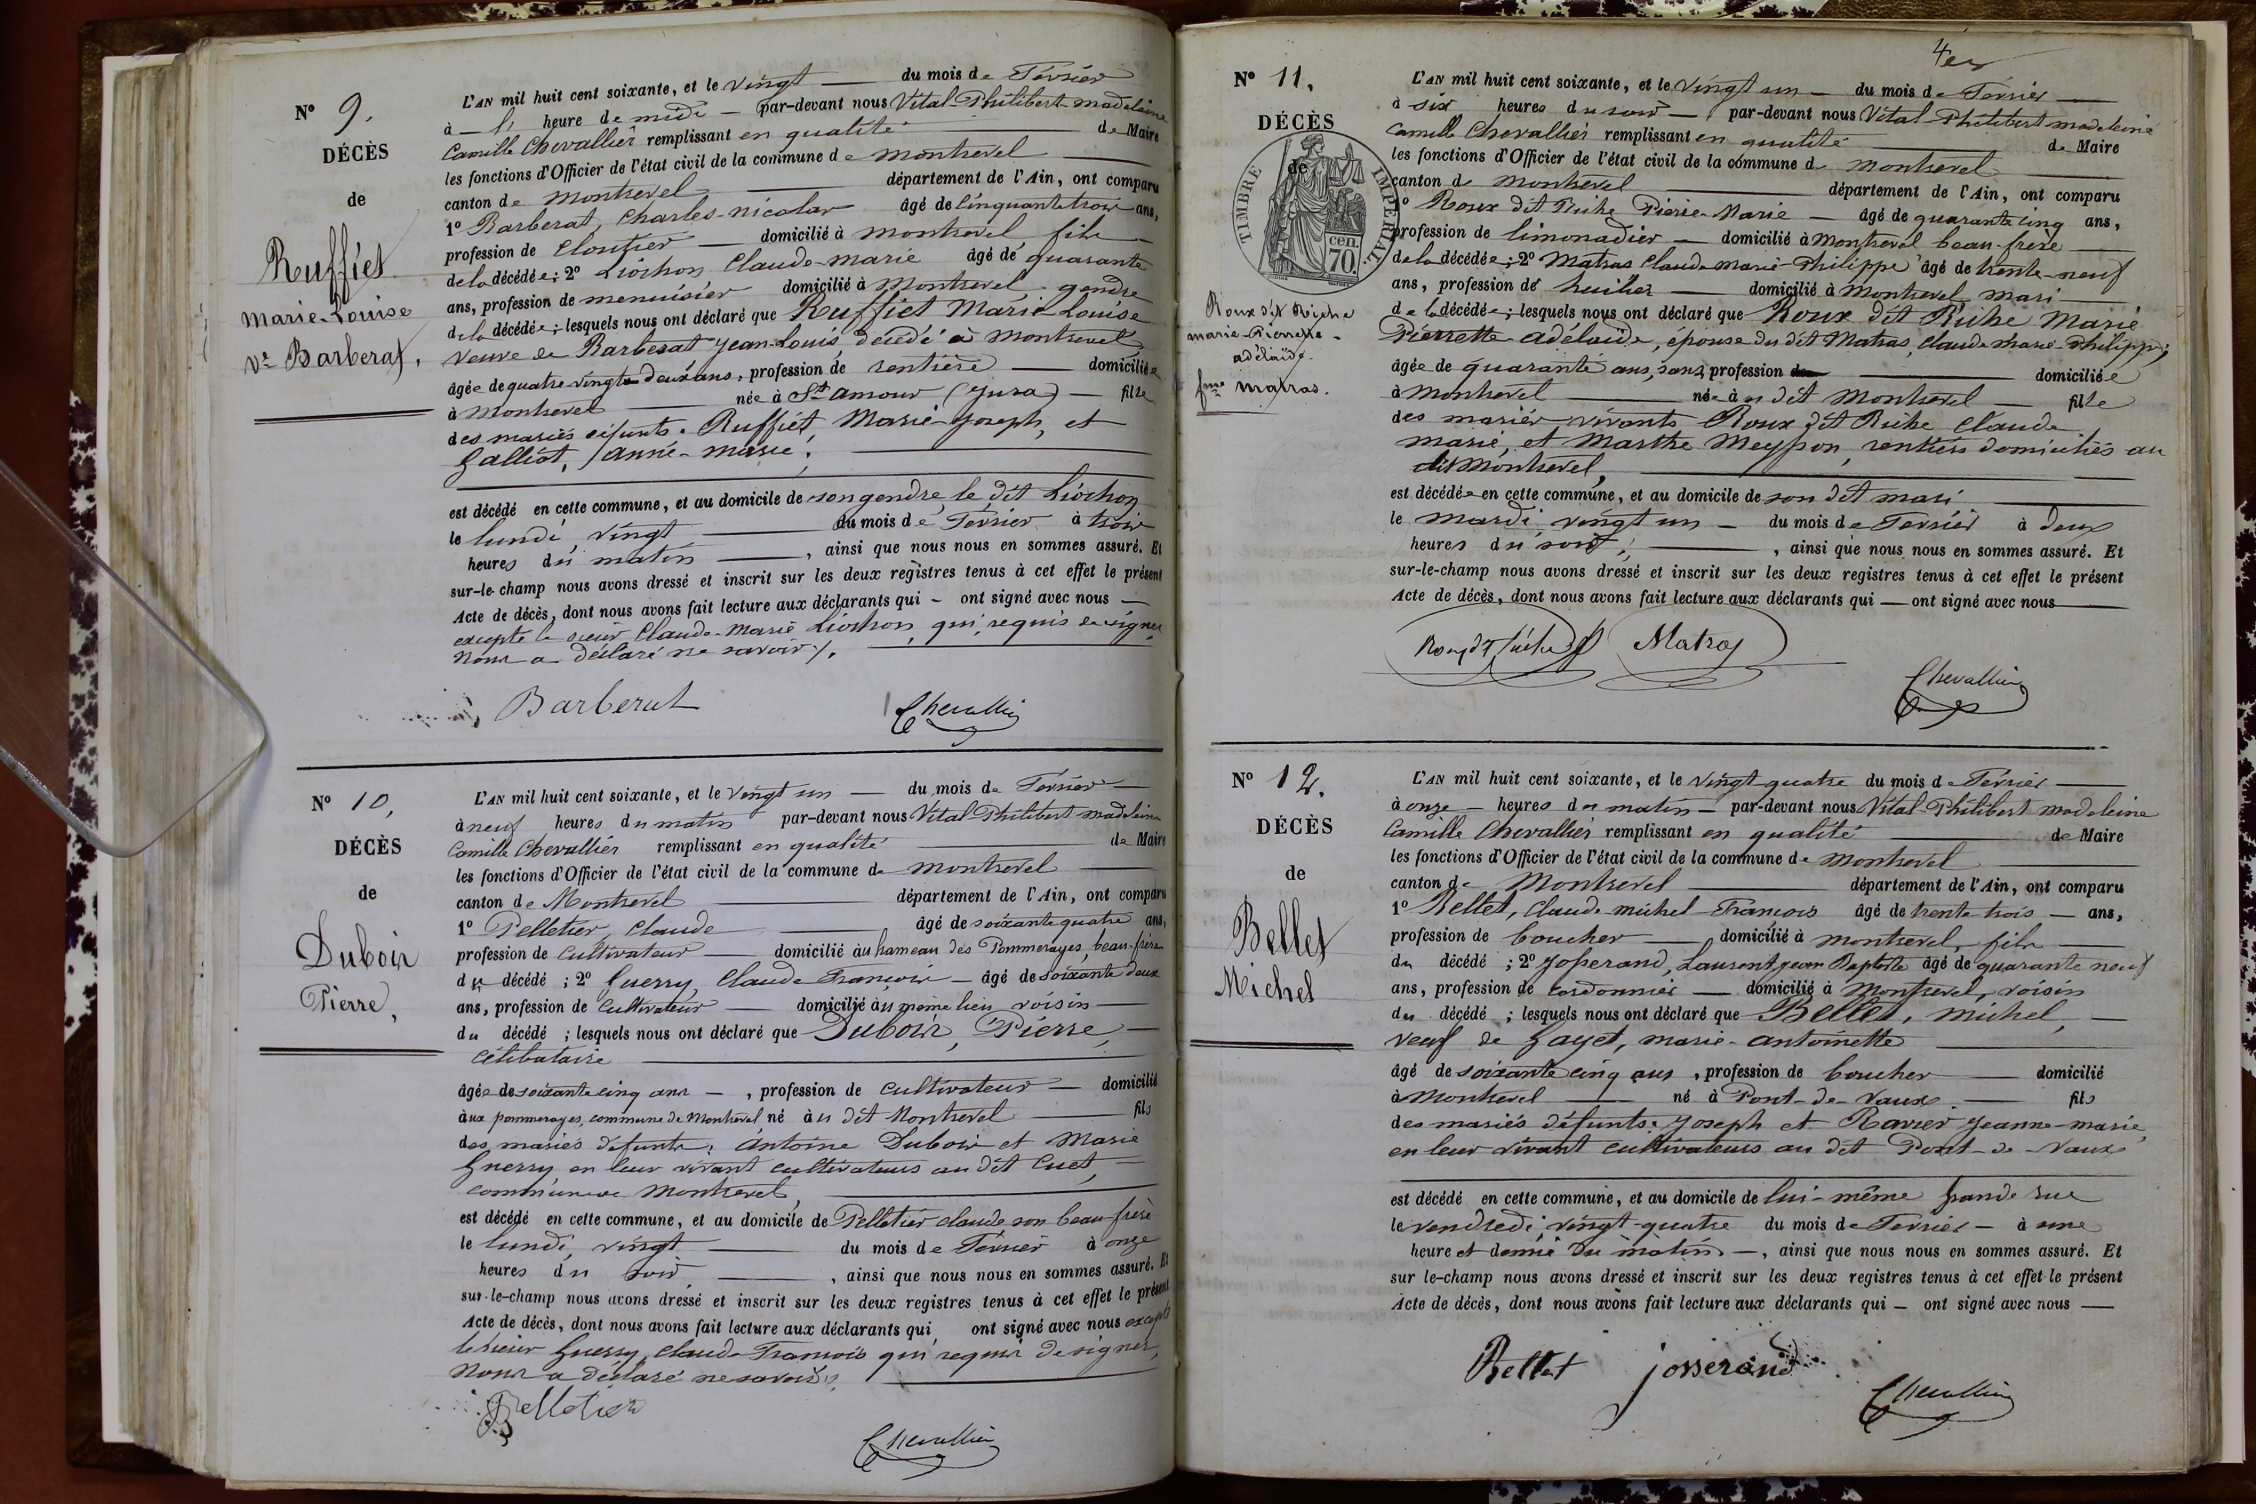 N° 9.
DÉCÈS
de
Ruffiet
Marie-Louise
Ve Barberat.
L'AN mil huit cent soixante, et le vingt du mois de Février
à heure de midi par-devant nous Vital-Philibert-madeleine
Camille Chevallier remplissant en qualité de Maire
les fonctions d'Officier de l'état civil de la commune de montrevel
canton de montrevel département de l'Ain, ont comparu
1° Barberat, Charles-nicolas âgé de cinquante trois ans,
profession de cloutier domicilié à montrevel, fils
de la décédée; 2° Liochon Claude-marie âgé de quarante
ans, profession de menuisier domicilié à Montrevel, gendre
de la décédée; lesquels nous ont déclaré que Ruffiet Marie Louise
veuve de Barberat Jean-Louis, décédé à Montrevel
âgée de quatre vingt deux ans, profession de rentière domiciliée
à Montrevel née à St amour (Jura) fille
des mariés défunts. Ruffiet, Marie-Joseph, et
Galliot, Anne-marie.
est décédé en cette commune, et au domicile de son gendre, le dit Liochon
le lundi, vingt du mois de Février à trois
heures du matin, ainsi que nous nous en sommes assuré. Et
sur-le-champ nous avons dressé et inscrit sur les deux registres tenus à cet effet le présent
Acte de décès, dont nous avons fait lecture aux déclarants qui ont signé avec nous
excepté le sieur Claude-Marie Liochon, qui, requis de signer
nous a déclaré ne savoir.
Barberat
Chevallier
N° 10.
DÉCÈS
de
Dubois
Pierre,
L'AN mil huit cent soixante, et le vingt un du mois de Février
à neuf heures du matin par-devant nous Vital-Philibert madeleine
Camille Chevallier remplissant en qualité de Maire
les fonctions d'Officier de l'état civil de la commune de montrevel
canton de Montrevel département de l'Ain, ont comparu
1° Pelletier, Claude âgé de soixante quatre ans,
profession de Cultivateur domicilié au hameau des Pommerayes, beau-frère
du décédé; 2° Guerry, Claude François âgé de soixante deux
ans, profession de Cultivateur domicilié au même lieu, voisin
du décédé; lesquels nous ont déclaré que Dubois, Pierre,
célibataire
âgée de soixante cinq ans, profession de cultivateur domicilié
aux pommerayes, commune de Montrevel né au dit Montrevel fils
des mariés défunts: Antoine Dubois et Marie
Guerry en leur vivant cultivateurs au dit Cuet,
commune de Montrevel,
est décédé en cette commune, et au domicile de Pelletier claude son beau frère
le lundi, vingt du mois de Février à onze
heures du soir, ainsi que nous nous en sommes assuré. Et
sur-le-champ nous avons dressé et inscrit sur les deux registres tenus à cet effet le présent
Acte de décès, dont nous avons fait lecture aux déclarants qui ont signé avec nous excepté
le sieur Guerry, Claude-François qui requis de signer,
nous a déclaré ne savoir.
Pelletier
Chevallier
N° 11.
DÉCÈS
de
TIMBRE IMPÉRIAL
70 cen.
Roux dit Riche
marie-Pierrette-
adélaïde.
fme matras.
L'AN mil huit cent soixante, et le vingt un du mois de Février
à six heures du soir par-devant nous Vital-Philibert madeleine
Camille Chevallier remplissant en qualité de Maire
les fonctions d'Officier de l'état civil de la commune de montrevel
canton de Montrevel département de l'Ain, ont comparu
1° Roux dit Riche Pierre-Marie âgé de quarante cinq ans,
profession de limonadier domicilié à Montrevel beau-frère
de la décédée; 2° Matras Claude-marie-Philippe âgé de trente-neuf
ans, profession de huilier domicilié à Montrevel mari
de la décédée; lesquels nous ont déclaré que Roux dit Riche Marie
Pierrette adélaïde, épouse du dit Matras, Claude-Marie-Philippe;
âgée de quarante ans, sans profession domiciliée
à Montrevel née au dit Montrevel fille
des mariés vivants Roux dit Riche Claude
marie, et Marthe Meyson, rentiers domiciliés au
dit Montrevel,
est décédée en cette commune, et au domicile de son dit mari
le mardi, vingt un du mois de Février à deux
heures du soir; , ainsi que nous nous en sommes assuré. Et
sur-le-champ nous avons dressé et inscrit sur les deux registres tenus à cet effet le présent
Acte de décès, dont nous avons fait lecture aux déclarants qui ont signé avec nous
Roux dt Riche Matras
Chevallier
N° 12.
DÉCÈS
de
Bellet
Michel
L'AN mil huit cent soixante, et le vingt quatre du mois de Février
à onze heures du matin par-devant nous Vital-Philibert madeleine
Camille Chevallier remplissant en qualité de Maire
les fonctions d'Officier de l'état civil de la commune de Montrevel
canton de Montrevel département de l'Ain, ont comparu
1° Bellet, Claude-michel-François âgé de trente trois ans,
profession de boucher domicilié à montrevel, fils
du décédé; 2° Josserand, Laurent, jean Baptiste âgé de quarante neuf
ans, profession de cordonnier domicilié à Montrevel, voisin
du décédé; lesquels nous ont déclaré que Bellet, michel,
veuf de Gayet, marie-antoinette
âgé de soixante cinq ans, profession de boucher domicilié
à Montrevel né à Pont-de-Vaux fils
des mariés défunts: Joseph et Ravier Jeanne-marie,
en leur vivant cultivateurs au dit Pont-de-Vaux
est décédé en cette commune, et au domicile de lui-même grande rue
le vendredi, vingt-quatre du mois de Février à une
heure et demie du matin, ainsi que nous nous en sommes assuré. Et
sur le-champ nous avons dressé et inscrit sur les deux registres tenus à cet effet le présent
Acte de décès, dont nous avons fait lecture aux déclarants qui ont signé avec nous
Bellet josserand
Chevallier